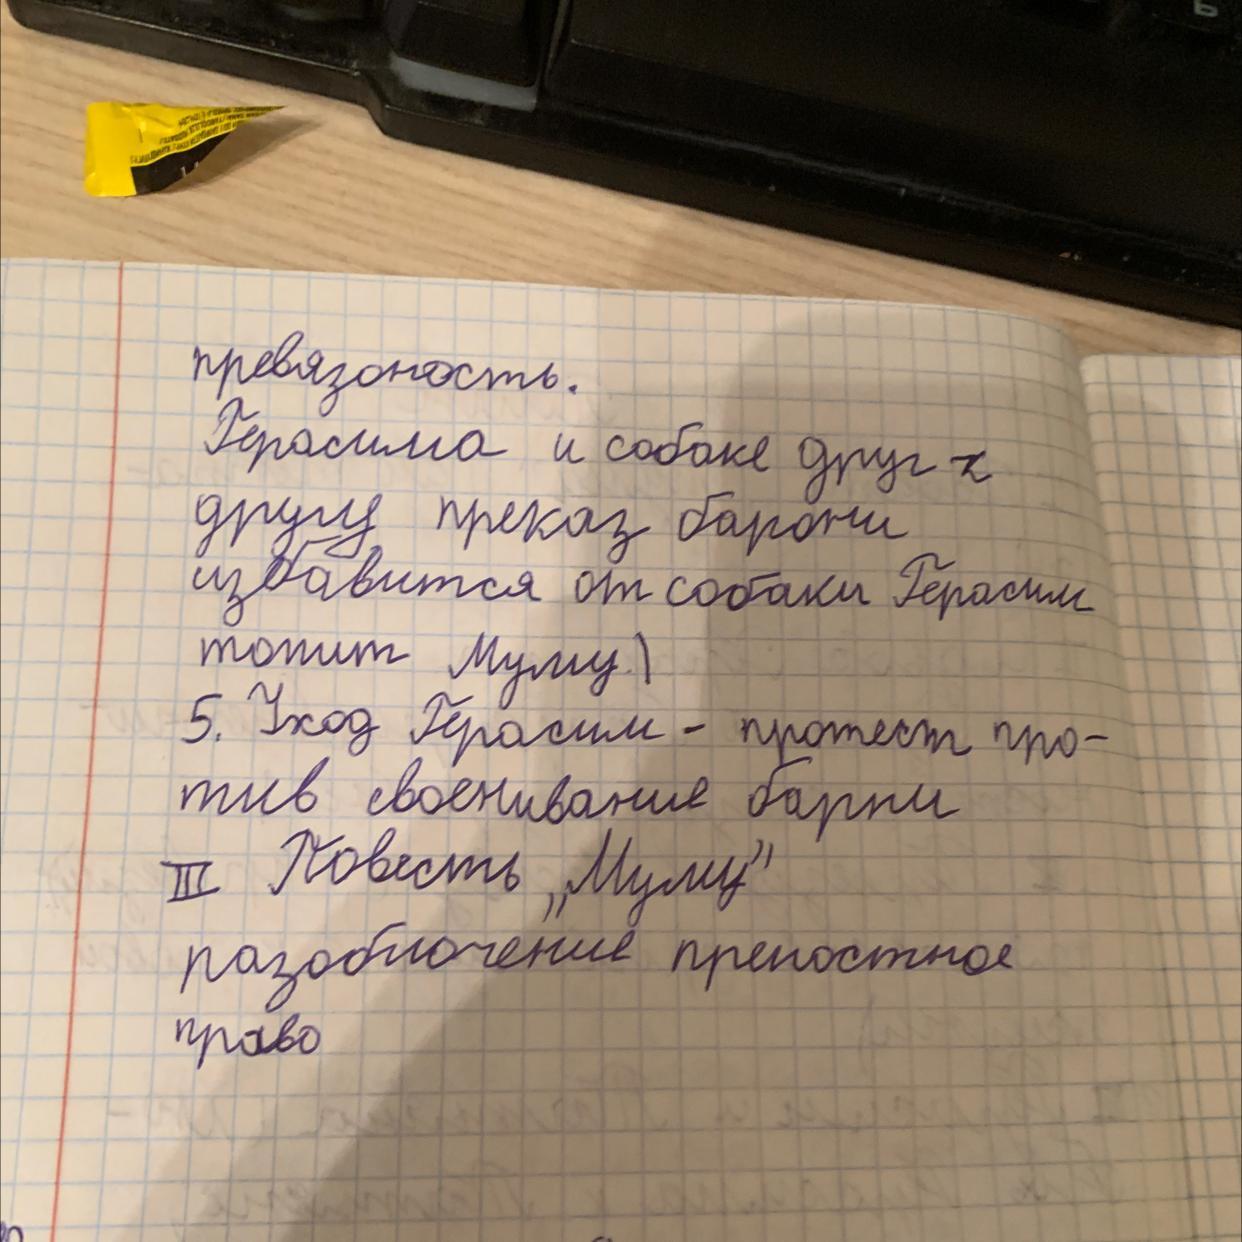 превязоность.
Герасима и собаке друг к
другу преказ барони
избавится от собаки Герасим
топит Муму)
5. Уход Герасим - протест про-
тив своенивание барни
III Повесть „Муму"
разоблочение препостное
право